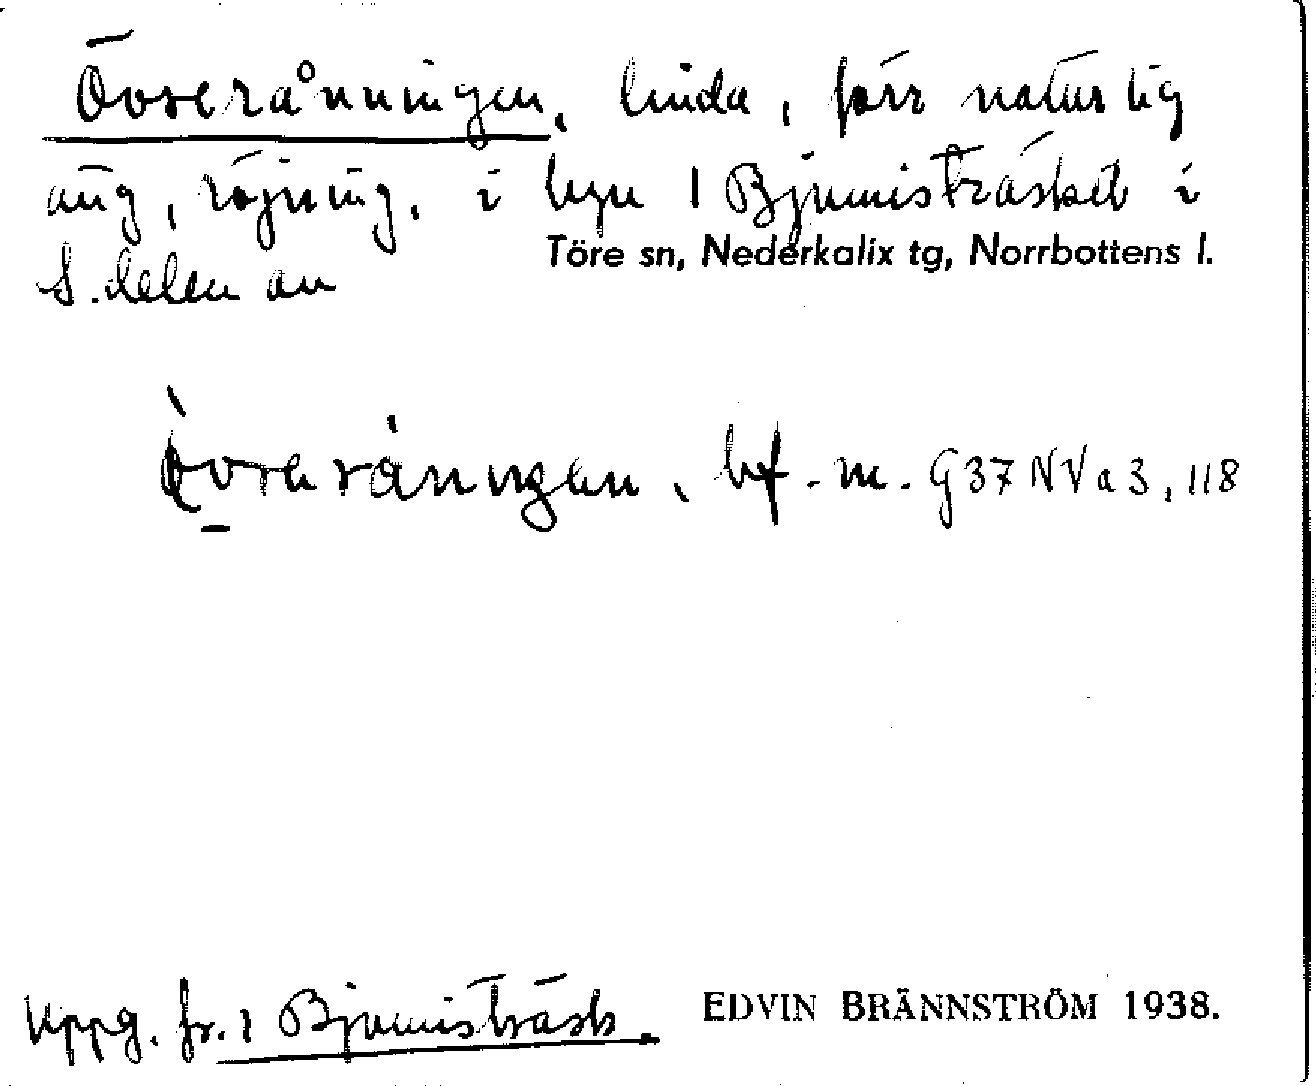 Övrerånningen, linda, förr naturlig
äng, röjning, i byn 1 Bjumisträsket i
S. delen av
Töre sn, Nederkalix tg, Norrbottens l.
bf. m. G37NVa3, 118
Uppg. fr. 1 Bjumisträsk.
EDVIN BRÄNNSTRÖM 1938.